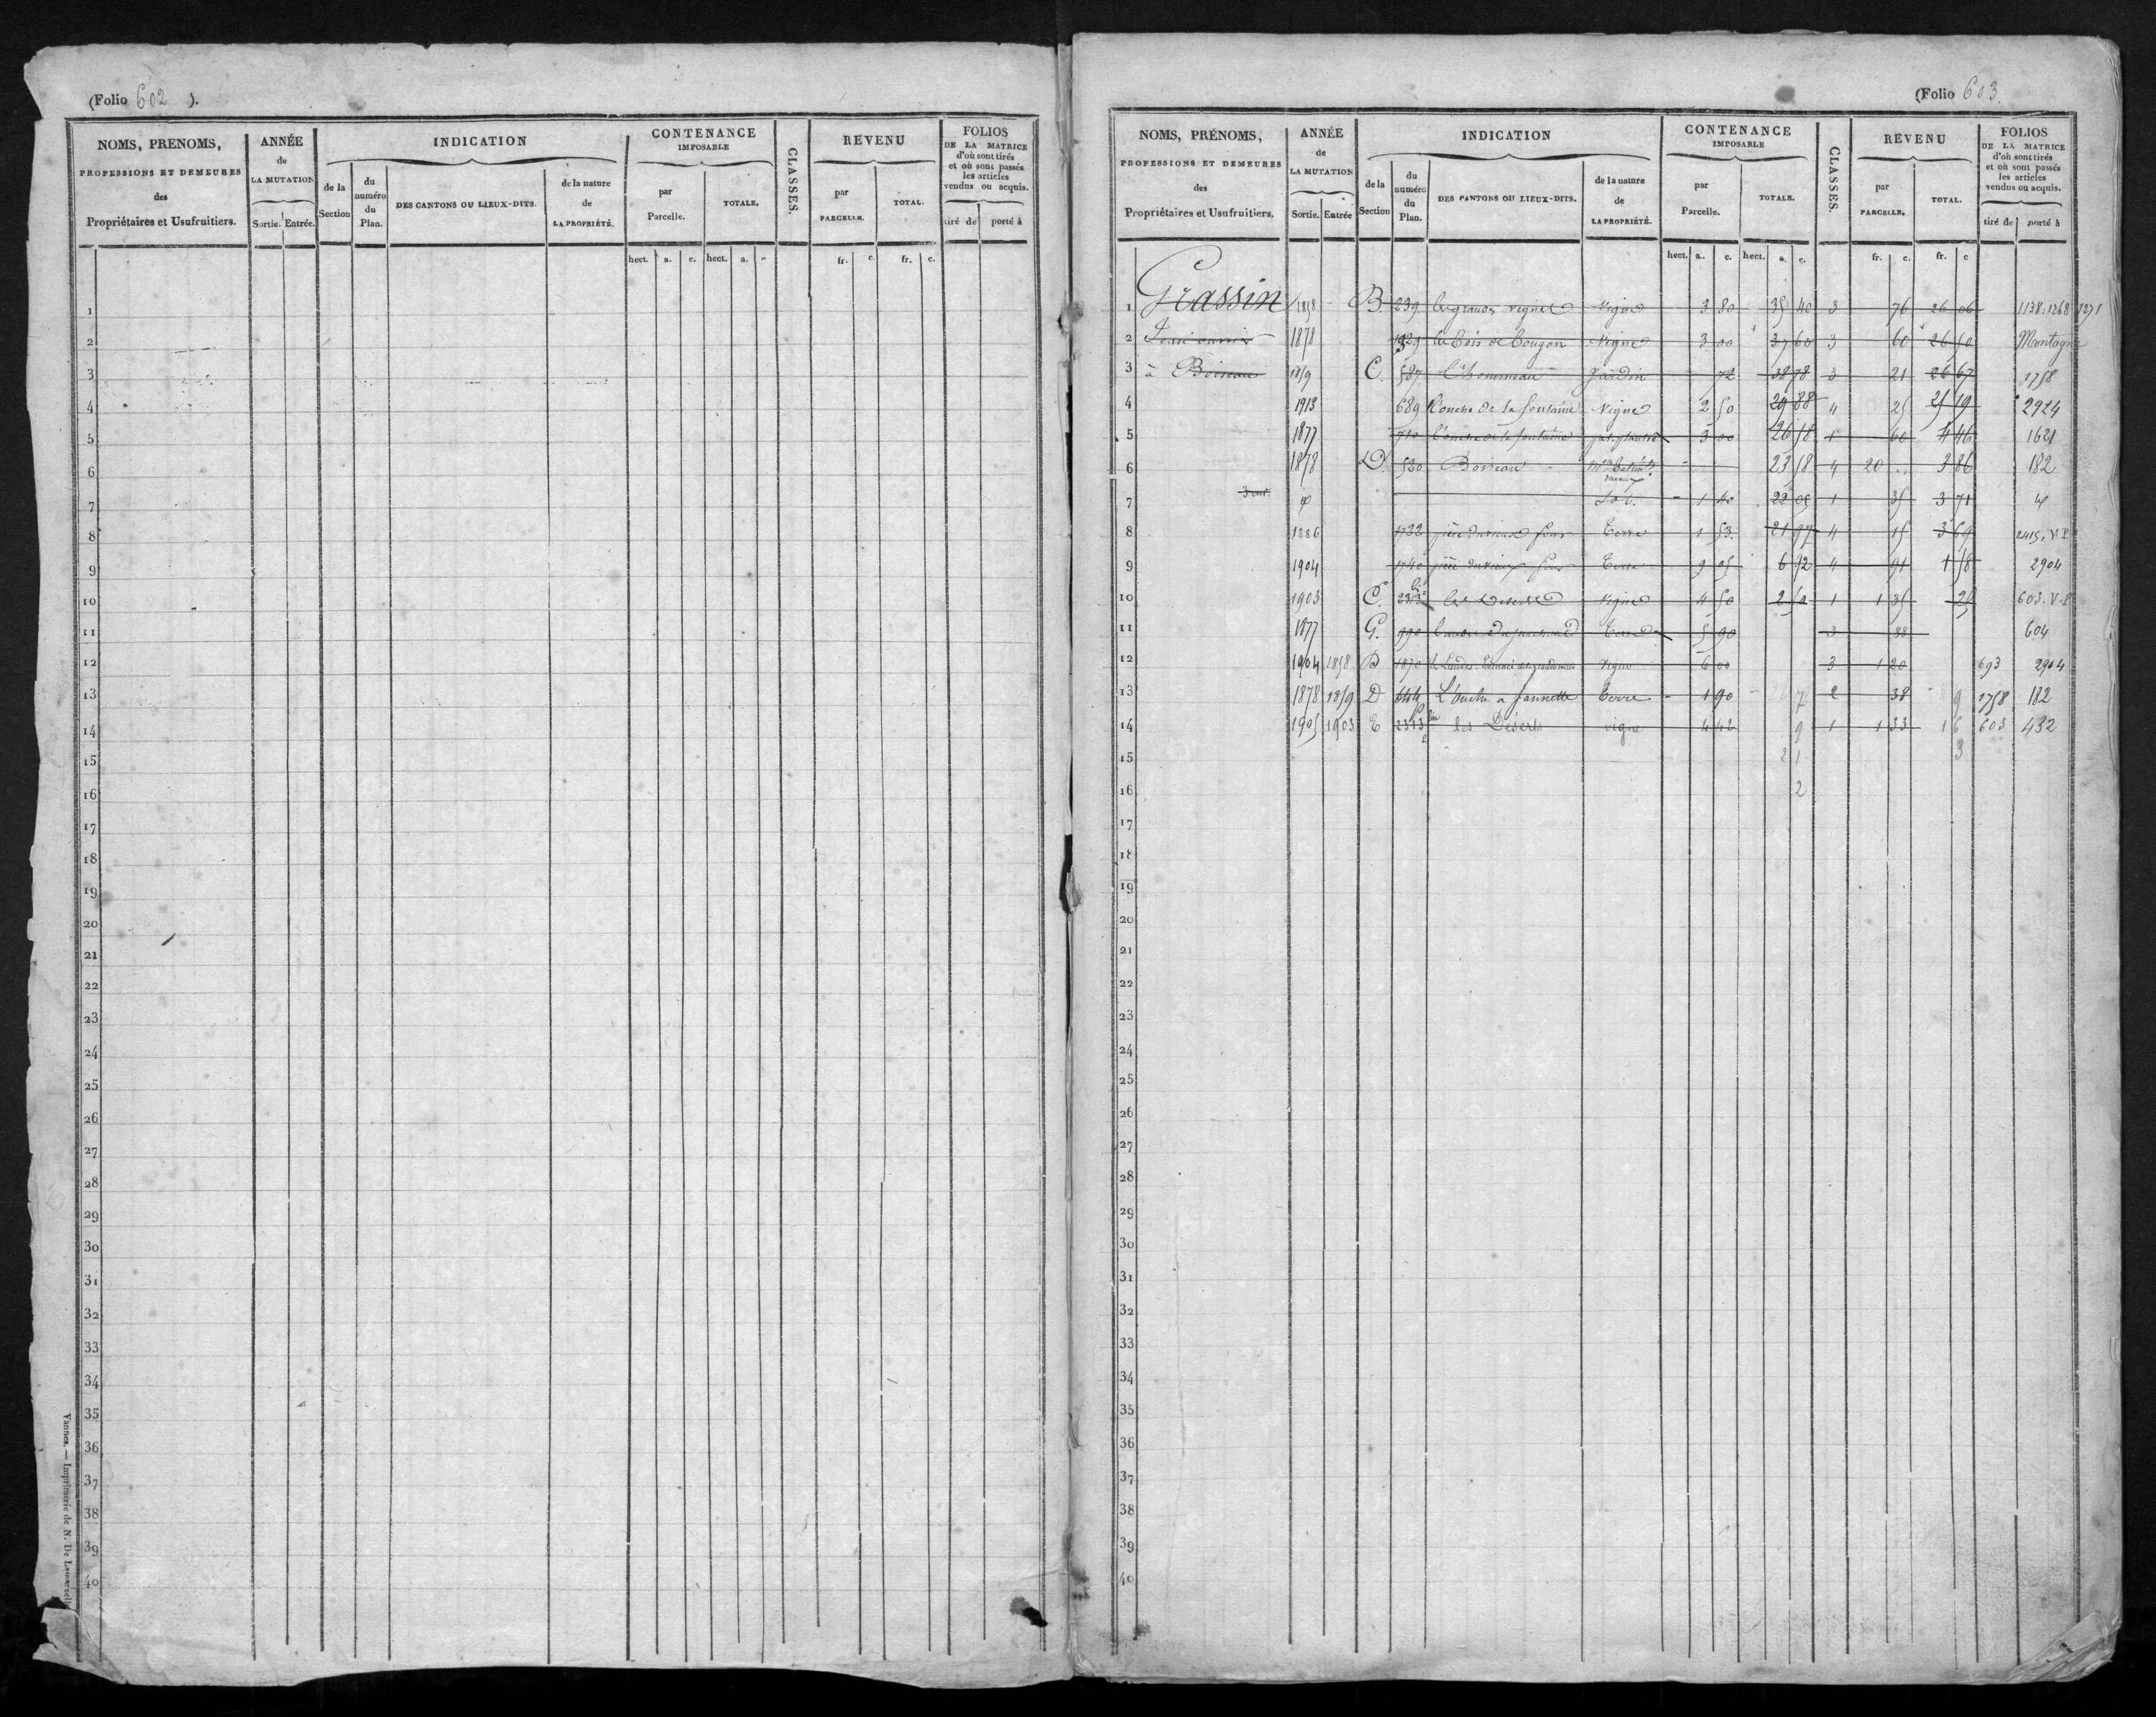 (Folio 602 ).
NOMS, PRENOMS,
PROFESSIONS ET DEMEURES
des
Propriétaires et Usufruitiers.
ANNÉE
de
LA MUTATION
Sortie. Entrée.
INDICATION
de la
Section
du
numéro
du
Plan.
DES CANTONS OU LIEUX-DITS.
de la nature
de
LA PROPRIÉTÉ.
CONTENANCE
IMPOSABLE
par
Parcelle.
TOTALE.
CLASSES.
REVENU
par
PARCELLE.
TOTAL.
FOLIOS
DE LA MATRICE
d'où sont tirés
et où sont passés
les articles
vendus ou acquis.
tiré de porté à
hect. a. c. hect. a. c fr. c. fr. c.
1
2
3
4
5
6
7
8
9
10
11
12
13
14
15
16
17
18
19
20
21
22
23
24
25
26
27
28
29
30
31
32
33
34
35
36
37
38
39
40
Vannes. — Imprimerie de N. De Lamarzelle
(Folio 603
NOMS, PRÉNOMS,
PROFESSIONS ET DEMEURES
des
Propriétaires et Usufruitiers.
ANNÉE
de
LA MUTATION
Sortie. Entrée
INDICATION
de la
Section
du
numéro
du
Plan.
DES CANTONS OU LIEUX-DITS.
de la nature
de
LA PROPRIÉTÉ.
CONTENANCE
IMPOSABLE
par
Parcelle.
TOTALE.
CLASSES.
REVENU
par
PARCELLE.
TOTAL.
FOLIOS
DE LA MATRICE
d'où sont tirés
et où sont passés
les articles
vendus ou acquis.
tiré de porté à
hect. a. c. hect. a. c. fr. c. fr. c
1 Grassin 1858 B. 239 les grandes vignes Vigne 3 80 35 40 3 76 26 06 1138.1268 1271
2 Jean 1878 1329 le Bois de Bougon Vigne 3 00 37 60 3 60 26 50 Montagne
3 à Boiseau 1859 C. 587 L'hommeau Jardin 72 38 78 3 21 26 67 1758
4 1913 689 L'ouche de la fontaine Vigne 2 50 29 88 4 25 25 19 2924
5 1877 710 L'ouche de la fontaine 3 00 26 58 1 60 4 46 1621
6 1878 D. 520 Boiseau 23 58 4 20 3 86 182
7 Sol. 1 40 22 05 1 35 3 71
8 1886 1732 Terre 1 53 21 97 4 15 3 69 2415. V.P.
9 1904 1740 Terre 9 05 6 92 4 91 1 58 2904
10 1903 C. 2313 bis les Deserts Vigne 4 50 2 50 1 1 35 25 603. V.P
11 1877 G. 990 Terre 5 90 3 88 604
12 1904 1858 B 1870 Vigne 6 00 3 1 20 693 2904
13 1878 1859 D 644 L'ouche a Jannette Terre 1 90 7 2 38 9 1758 182
14 1905 1903 E 2313 bis les Déserts vigne 4 42 9 1 1 33 1 6 603 432
15 2 1 3
16 2
17
18
19
20
21
22
23
24
25
26
27
28
29
30
31
32
33
34
35
36
37
38
39
40